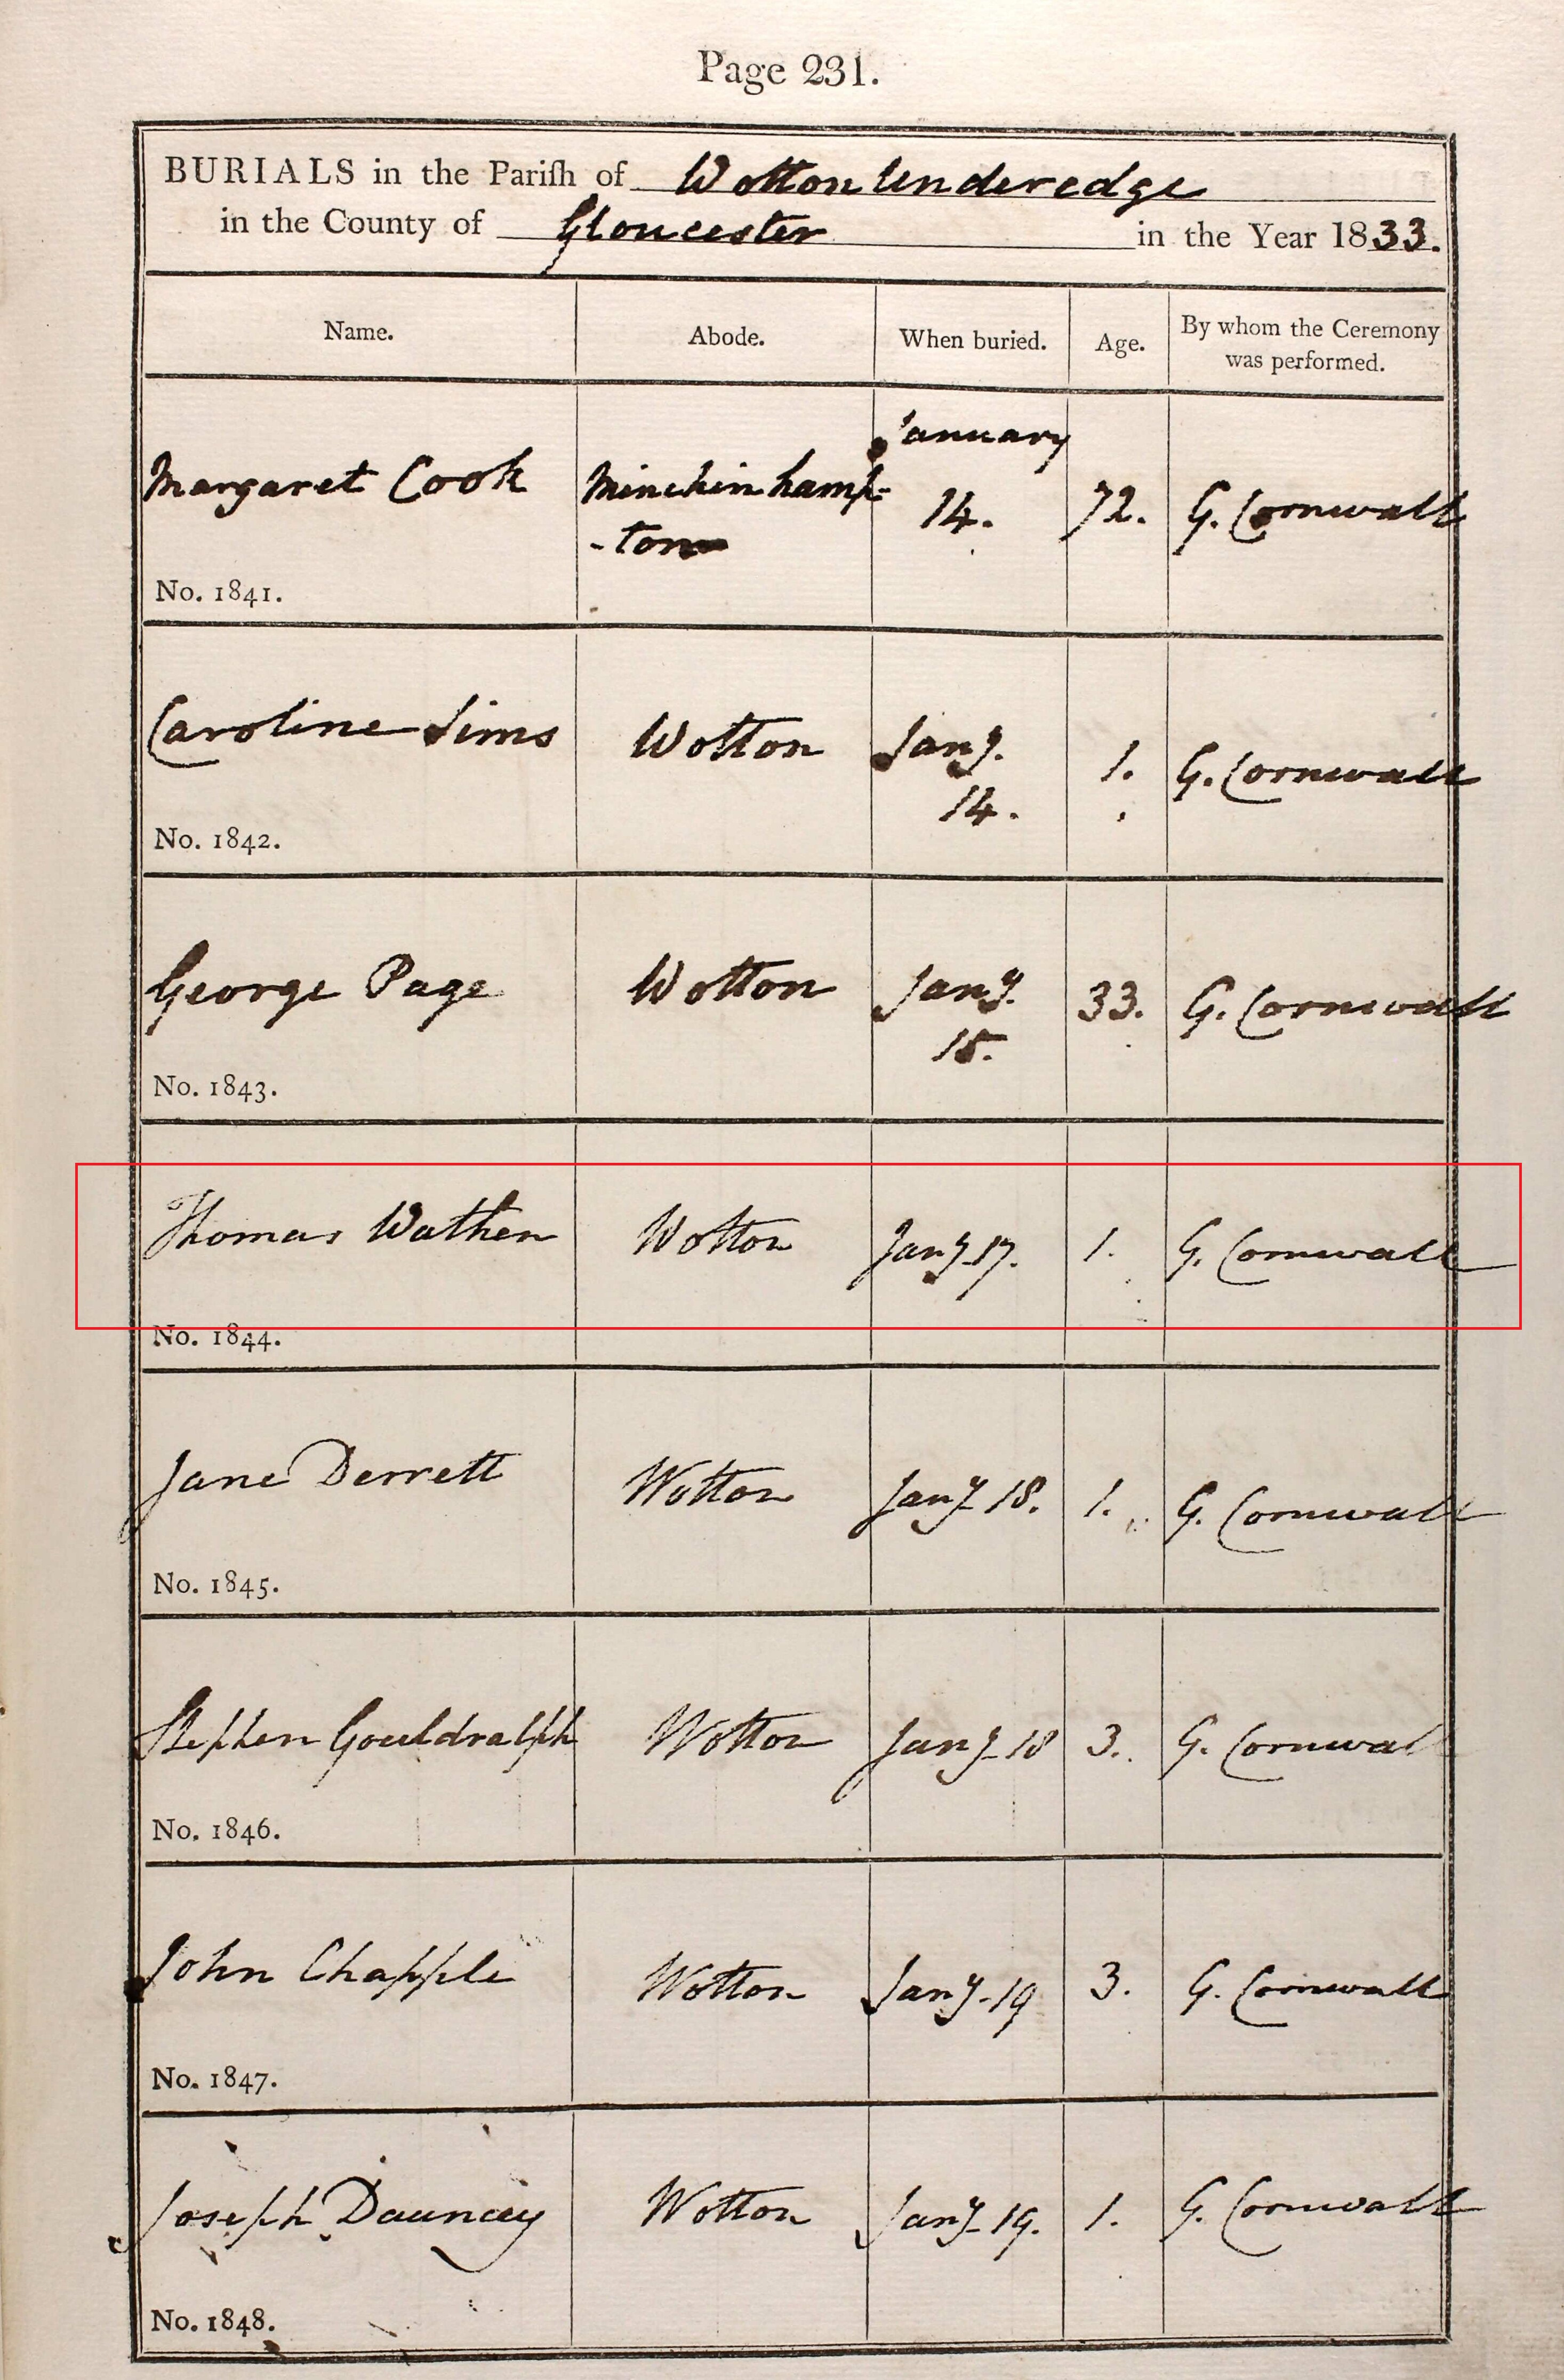 Page 231.
BURIALS in the Pariſh of Wotton Underedge
in the County of Gloucester in the Year 1833.
Name. Abode. When buried. Age. By whom the Ceremony was performed.
January
Margaret Cook Minchinhamp- 14. 72. G. Cornwall
-ton
No. 1841.
Caroline Sims Wotton Jany. 1. G. Cornwall
14.
No. 1842.
George Page Wotton Jany. 33. G. Cornwall
15.
No. 1843.
Thomas Wathen Wotton Jany 17. 1. G. Cornwall
No. 1844.
Jane Derrett Wotton Jany 18. 1. G. Cornwall
No. 1845.
Stephen Gouldralph Wotton Jany 18 3. G. Cornwall
No. 1846.
John Chapple Wotton Jany 19 3. G. Cornwall
No. 1847.
Joseph Dauncey Wotton Jany 19. 1. G. Cornwall
No. 1848.